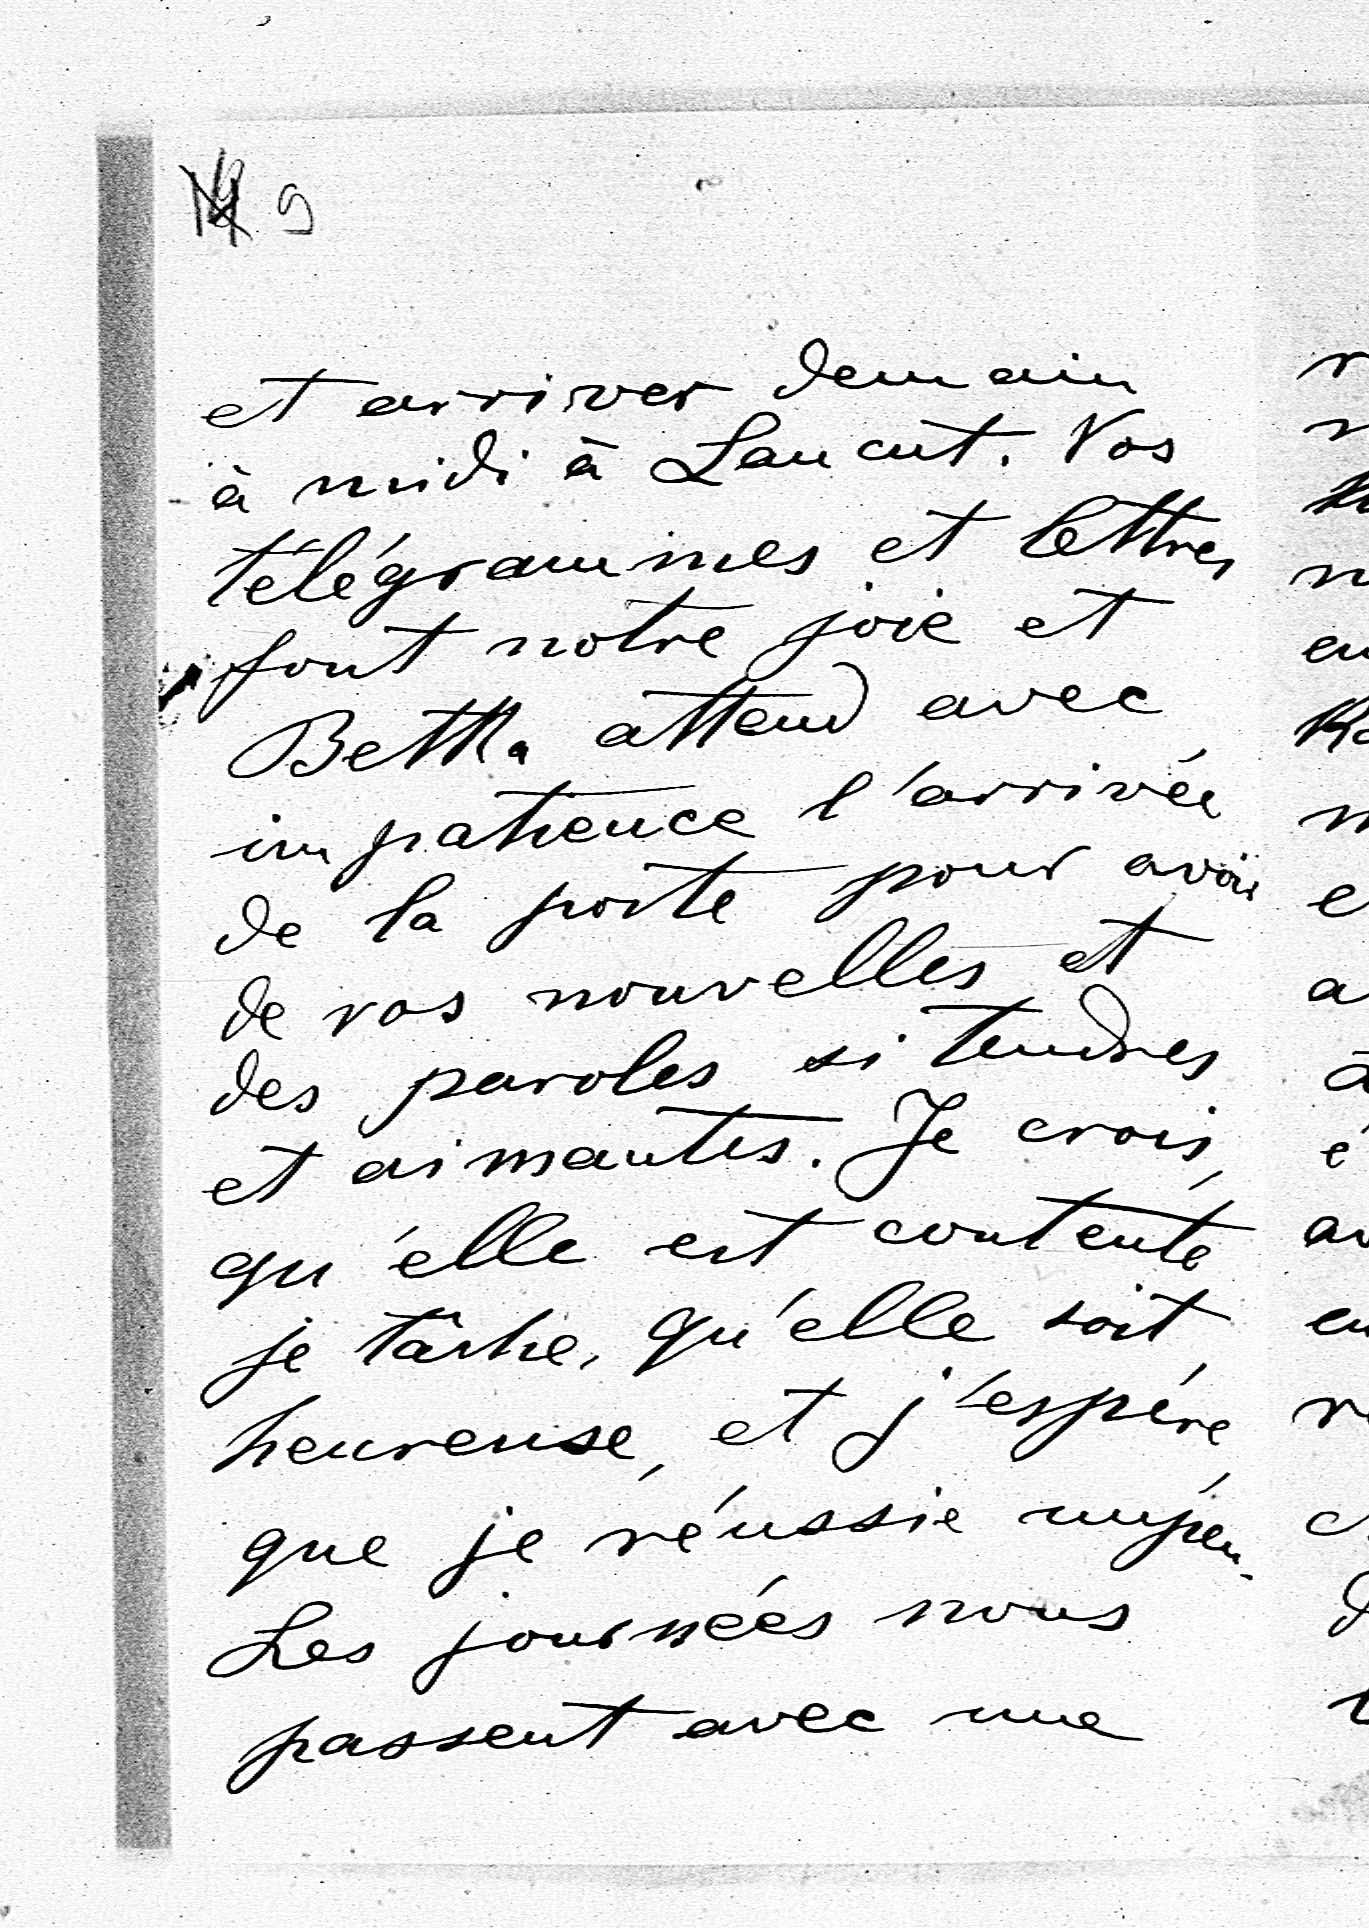 9
et arriver demain
à midi à Lancut. Vos
télégrammes et lettres
font notre joie et
Betka attend avec
impatience l'arrivée
de la poste pour avoir
de vos nouvelles et
des paroles si tendres
et aimantes. Je crois,
qu'elle est contente
je tâche, qu'elle soit
heureuse, et j'espére,
que je réussie unpeu.
Les journées nous
passent avec une